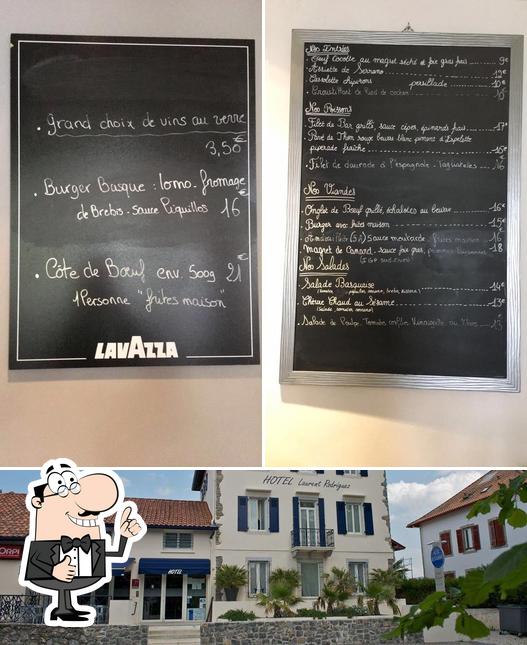 . Grand choix de vins au verre
3,50€
. Burger Basque : lomo. fromage
de Brebis. sauce Piquillos 16€
. Côte de Bœuf env. 500g 21€
1 Personne "frites maison"
LAVAZZA
Nos Entrées
. Oeuf Cocotte au magret séché et foie gras frais 9€
. Assiette de Serrano 12€
Cassolette chipirons persillade 10€
. Croustillant de Pied de cochon
Nos Poissons
. Filet de Bar grillé, sauce cèpes, épinards frais 17€
. Pavé de Thon rouge beurre blanc piment d'Espelette
piperade fraîche 16€
. Filet de daurade à l'espagnole. Tagliatelles 16
Nos Viandes
. Onglet de Bœuf grillé, échalotes au beurre 16€
. Burger avec frites maison 15€
sauce moutarde frites maison 16
Magret de Canard, sauce foie gras, 18
Nos Salades
. Salade Basquaise 14€
. Chèvre Chaud au Sésame 13€
(Salade, tomates,
Salade de Poulpe, Tomate confite, Vinaigrette au 13
HOTEL Laurent Rodriguez
HOTEL
ORPI